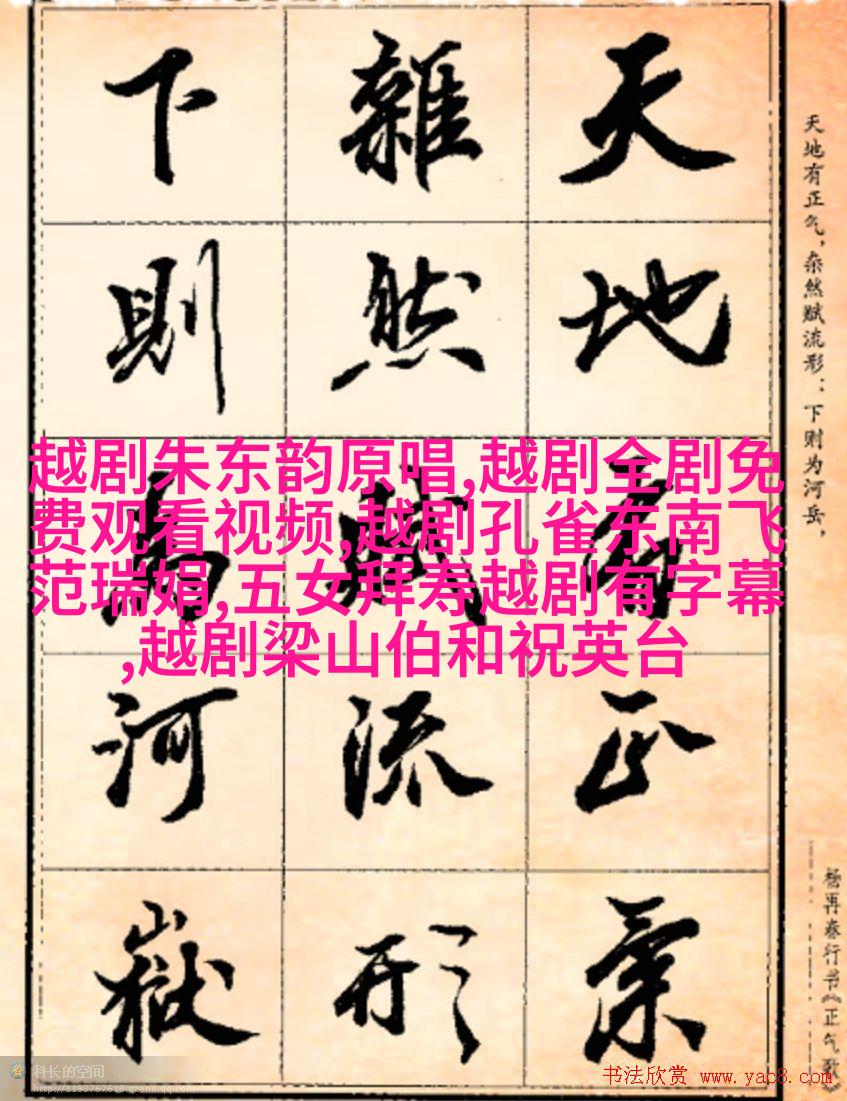 天地有正氣
雜然賦流形
下則為河嶽
天地有正气，杂然赋流形：下则为河岳，
杨再春行书《正气歌》
越剧朱东韵原唱,越剧全剧免
费观看视频,越剧孔雀东南飞
范瑞娟,五女拜寿越剧有字幕
,越剧梁山伯和祝英台
科长的空间
http://1193767618.qzone.qq.com
书法欣赏 www.yac8.com